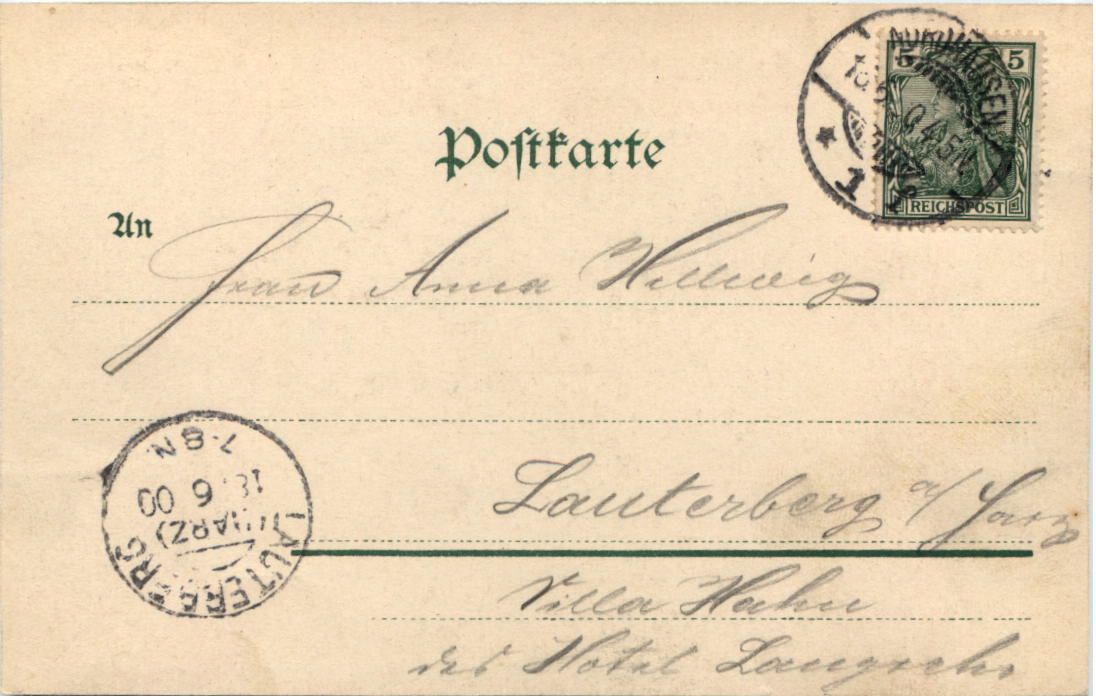 Postkarte
NORDHAUSEN
5 5
4-5N
1
REICHSPOST
An
Frau Anna Hellwig
7-8N
18 6 00
(HARZ)
LAUTERBERG
Lauterberg a/ Harz
Villa Hahn
des Hotel